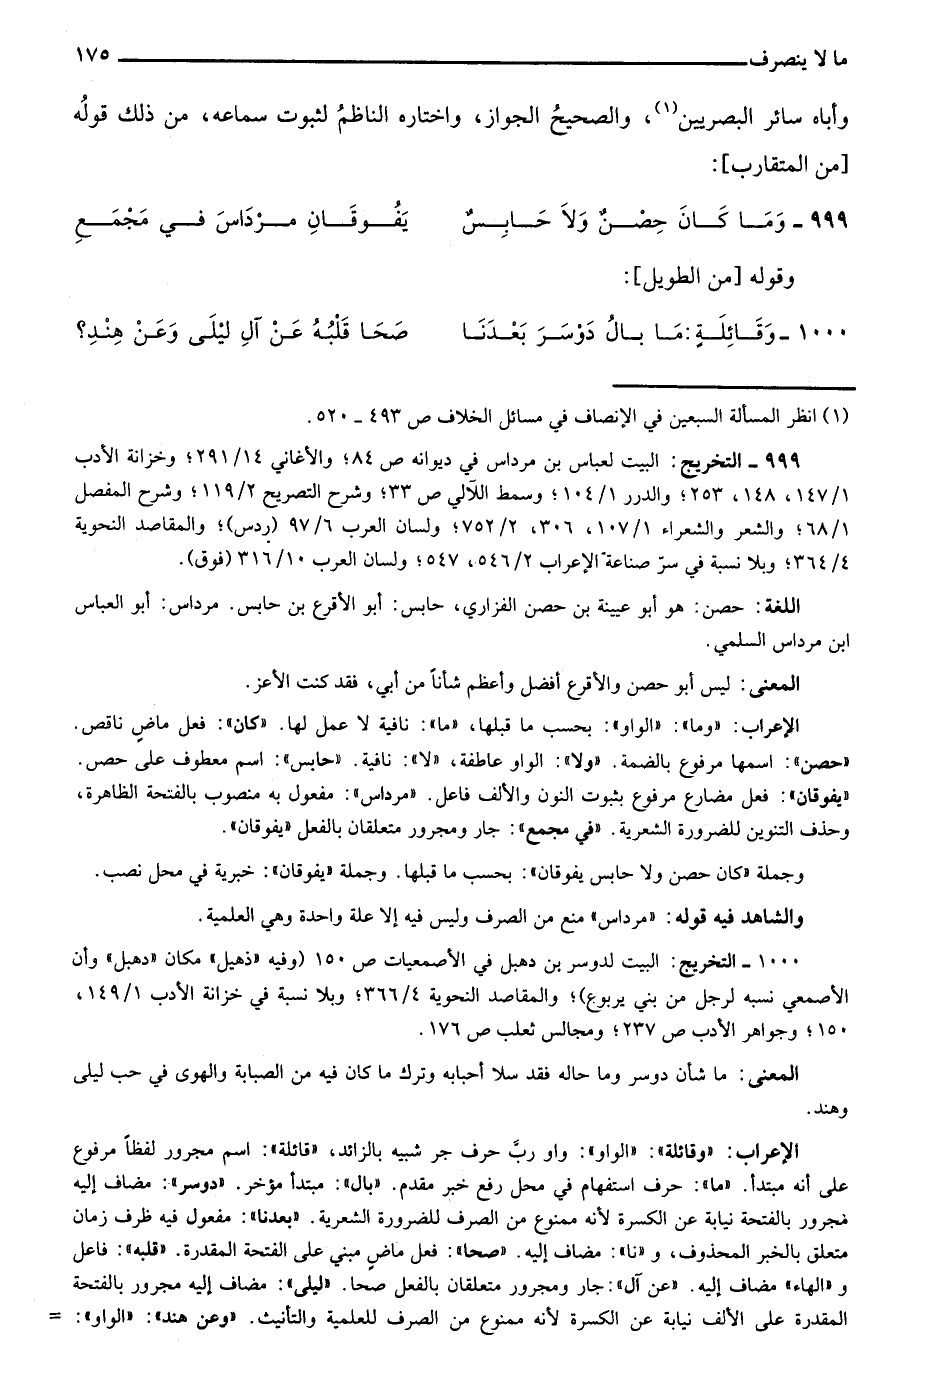 ما لا ينصرف ١٧٥
وأباه سائر البصريين(١)، والصحيحُ الجواز، واختاره الناظمُ لثبوت سماعه، من ذلك قولُه
[من المتقارب]:
٩٩٩ - وَمَـا كَـانَ حِصْـنٌ وَلاَ حَـابِـسٌ يَفُـوقَـانِ مـرْدَاسَ فـي مَجْمَـعِ
وقوله [من الطويل]:
١٠٠٠ - وَقَـائِلَـةٍ: مَـا بـالُ دَوْسَـرَ بَعْـدَنَـا صَحَـا قَلْبُـهُ عَـنْ آلِ لَيْلَـى وَعَـنْ هِنْـدِ؟
(١) انظر المسألة السبعين في الإنصاف في مسائل الخلاف ص ٤٩٣ - ٥٢٠.
٩٩٩ - التخريج: البيت لعباس بن مرداس في ديوانه ص ٨٤؛ والأغاني ٢٩١/١٤؛ وخزانة الأدب
١٤٧/١، ١٤٨، ٢٥٣؛ والدرر ١٠٤/١؛ وسمط اللآلي ص ٣٣؛ وشرح التصريح ١١٩/٢؛ وشرح المفصل
٦٨/١؛ والشعر والشعراء ١٠٧/١، ٣٠٦، ٧٥٢/٢؛ ولسان العرب ٩٧/٦ (ردس)؛ والمقاصد النحوية
٣٦٤/٤؛ وبلا نسبة في سرّ صناعة الإعراب ٥٤٦/٢، ٥٤٧؛ ولسان العرب ٣١٦/١٠ (فوق).
اللغة: حصن: هو أبو عيينة بن حصن الفزاري، حابس: أبو الأقرع بن حابس. مرداس: أبو العباس
ابن مرداس السلمي.
المعنى: ليس أبو حصن والأقرع أفضل وأعظم شأناً من أبي، فقد كنت الأعز.
الإعراب: «وما»: «الواو»: بحسب ما قبلها، «ما»: نافية لا عمل لها. «كان»: فعل ماضٍ ناقص.
«حصن»: اسمها مرفوع بالضمة. «ولا»: الواو عاطفة، «لا»: نافية. «حابس»: اسم معطوف على حصن.
«يفوقان»: فعل مضارع مرفوع بثبوت النون والألف فاعل. «مرداس»: مفعول به منصوب بالفتحة الظاهرة،
وحذف التنوين للضرورة الشعرية. «في مجمع»: جار ومجرور متعلقان بالفعل «يفوقان».
وجملة «كان حصن ولا حابس يفوقان»: بحسب ما قبلها. وجملة «يفوقان»: خبرية في محل نصب.
والشاهد فيه قوله: «مرداس» منع من الصرف وليس فيه إلا علة واحدة وهي العلمية.
١٠٠٠ - التخريج: البيت لدوسر بن دهبل في الأصمعيات ص ١٥٠ (وفيه «ذهيل» مكان «دهبل» وأن
الأصمعي نسبه لرجل من بني يربوع)؛ والمقاصد النحوية ٣٦٦/٤؛ وبلا نسبة في خزانة الأدب ١٤٩/١،
١٥٠؛ وجواهر الأدب ص ٢٣٧؛ ومجالس ثعلب ص ١٧٦.
المعنى: ما شأن دوسر وما حاله فقد سلا أحبابه وترك ما كان فيه من الصبابة والهوى في حب ليلى
وهند.
الإعراب: «وقائلة»: «الواو»: واو ربَّ حرف جر شبيه بالزائد، «قائلة»: اسم مجرور لفظاً مرفوع
على أنه مبتدأ. «ما»: حرف استفهام في محل رفع خبر مقدم. «بال»: مبتدأ مؤخر. «دوسر»: مضاف إليه
مجرور بالفتحة نيابة عن الكسرة لأنه ممنوع من الصرف للضرورة الشعرية. «بعدنا»: مفعول فيه ظرف زمان
متعلق بالخبر المحذوف، و «نا»: مضاف إليه. «صحا»: فعل ماضٍ مبني على الفتحة المقدرة. «قلبه»: فاعل
و «الهاء» مضاف إليه. «عن آل»: جار ومجرور متعلقان بالفعل صحا. «ليلى»: مضاف إليه مجرور بالفتحة
المقدرة على الألف نيابة عن الكسرة لأنه ممنوع من الصرف للعلمية والتأنيث. «وعن هند»: «الواو»: =